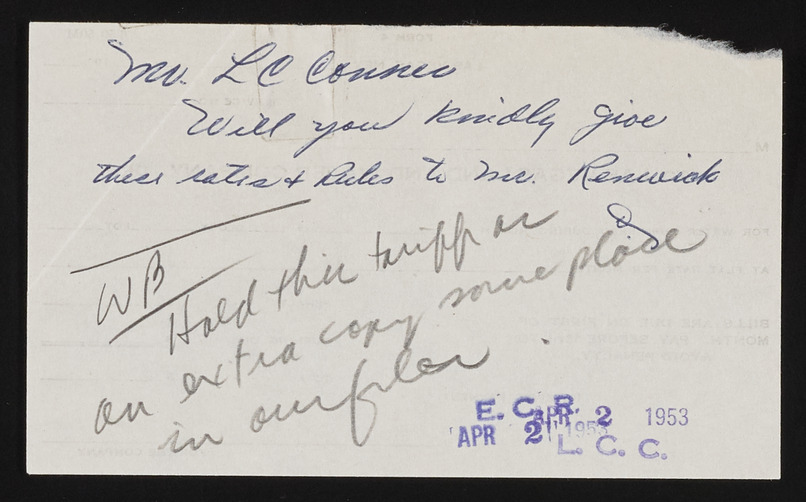 Mr. L C Conner
Will you kindly give
these rates & Rules to Mr. Renwick
WB
Hold this tariff or
an extra copy some place
in our files.
E. C. R. APR 2 1953
APR 2 1953
L. C. C.